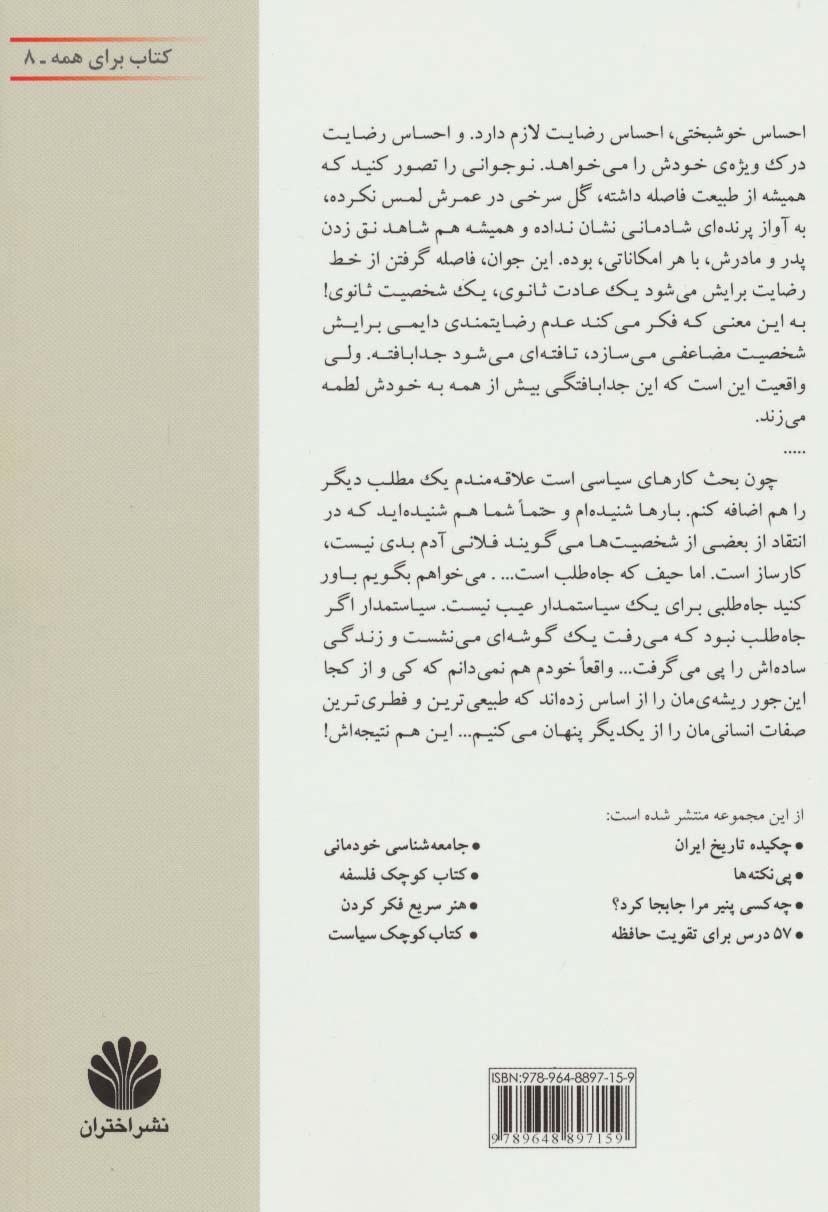 کتاب برای همه ـ ۸
احساس خوشبختی، احساس رضایت لازم دارد. و احساس رضایت
درک ویژه‌ی خودش را می‌خواهد. نوجوانی را تصور کنید که
همیشه از طبیعت فاصله داشته، گُل سرخی در عمرش لمس نکرده،
به آواز پرنده‌ای شادمانی نشان نداده و همیشه هم شاهد نق زدن
پدر و مادرش، با هر امکاناتی، بوده. این جوان، فاصله گرفتن از خط
رضایت برایش می‌شود یک عادت ثانوی، یک شخصیت ثانوی!
به این معنی که فکر می‌کند عدم رضایتمندی دایمی برایش
شخصیت مضاعفی می‌سازد، تافته‌ای می‌شود جدابافته. ولی
واقعیت این است که این جدابافتگی بیش از همه به خودش لطمه
می‌زند.
.....
چون بحث کارهای سیاسی است علاقه‌مندم یک مطلب دیگر
را هم اضافه کنم. بارها شنیده‌ام و حتماً شما هم شنیده‌اید که در
انتقاد از بعضی از شخصیت‌ها می‌گویند فلانی آدم بدی نیست،
کارساز است. اما حیف که جاه‌طلب است... . می‌خواهم بگویم باور
کنید جاه‌طلبی برای یک سیاستمدار عیب نیست. سیاستمدار اگر
جاه‌طلب نبود که می‌رفت یک گوشه‌ای می‌نشست و زندگی
ساده‌اش را پی می‌گرفت... واقعاً خودم هم نمی‌دانم که کی و از کجا
این‌جور ریشه‌ی‌مان را از اساس زده‌اند که طبیعی‌ترین و فطری‌ترین
صفات انسانی‌مان را از یکدیگر پنهان می‌کنیم... این هم نتیجه‌اش!
از این مجموعه منتشر شده است:
● چکیده تاریخ ایران
● پی‌نکته‌ها
● چه‌کسی پنیر مرا جابجا کرد؟
● ۵۷ درس برای تقویت حافظه
● جامعه‌شناسی خودمانی
● کتاب کوچک فلسفه
● هنر سریع فکر کردن
● کتاب کوچک سیاست
ISBN:978-964-8897-15-9
9 789648 897159
نشر اختران